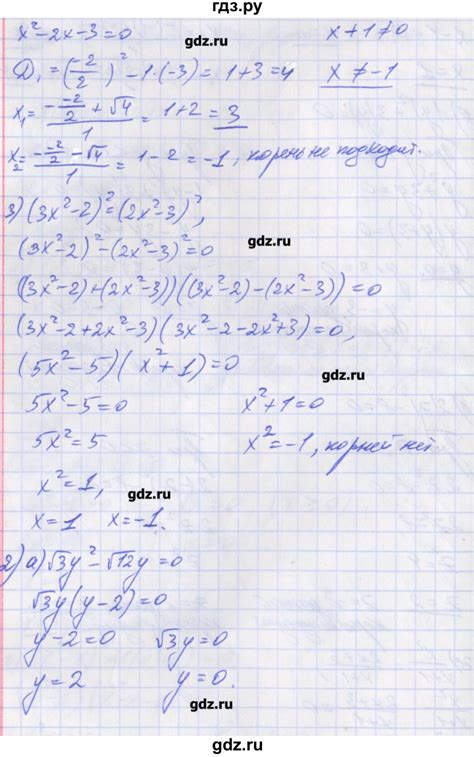 гдз.ру
x²-2x-3=0 x+1≠0
gdz.ru gdz.ru
D₁=(-2/2)²-1·(-3)=1+3=4 x≠-1
x₁=(-(-2/2)+√4)/1=1+2=3
x₂=(-(-2/2)-√4)/1=1-2=-1, корень не подходит.
gdz.ru
3)(3x²-2)²=(2x²-3)²,
(3x²-2)²-(2x²-3)²=0
gdz.ru
((3x²-2)+(2x²-3))((3x²-2)-(2x²-3))=0
(3x²-2+2x²-3)(3x²-2-2x²+3)=0,
(5x²-5)(x²+1)=0
gdz.ru
5x²-5=0 x²+1=0
5x²=5 x²=-1, корней нет
gdz.ru
x²=1,
x=1 x=-1.
gdz.ru
2)а)√3y²-√12y=0
√3y(y-2)=0
gdz.ru
y-2=0 √3y=0
y=2 y=0.
gdz.ru
gdz.ru